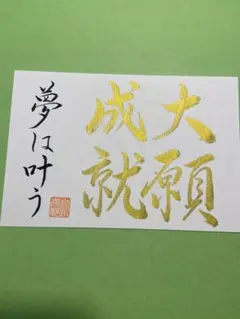 大願
成就
夢は叶う